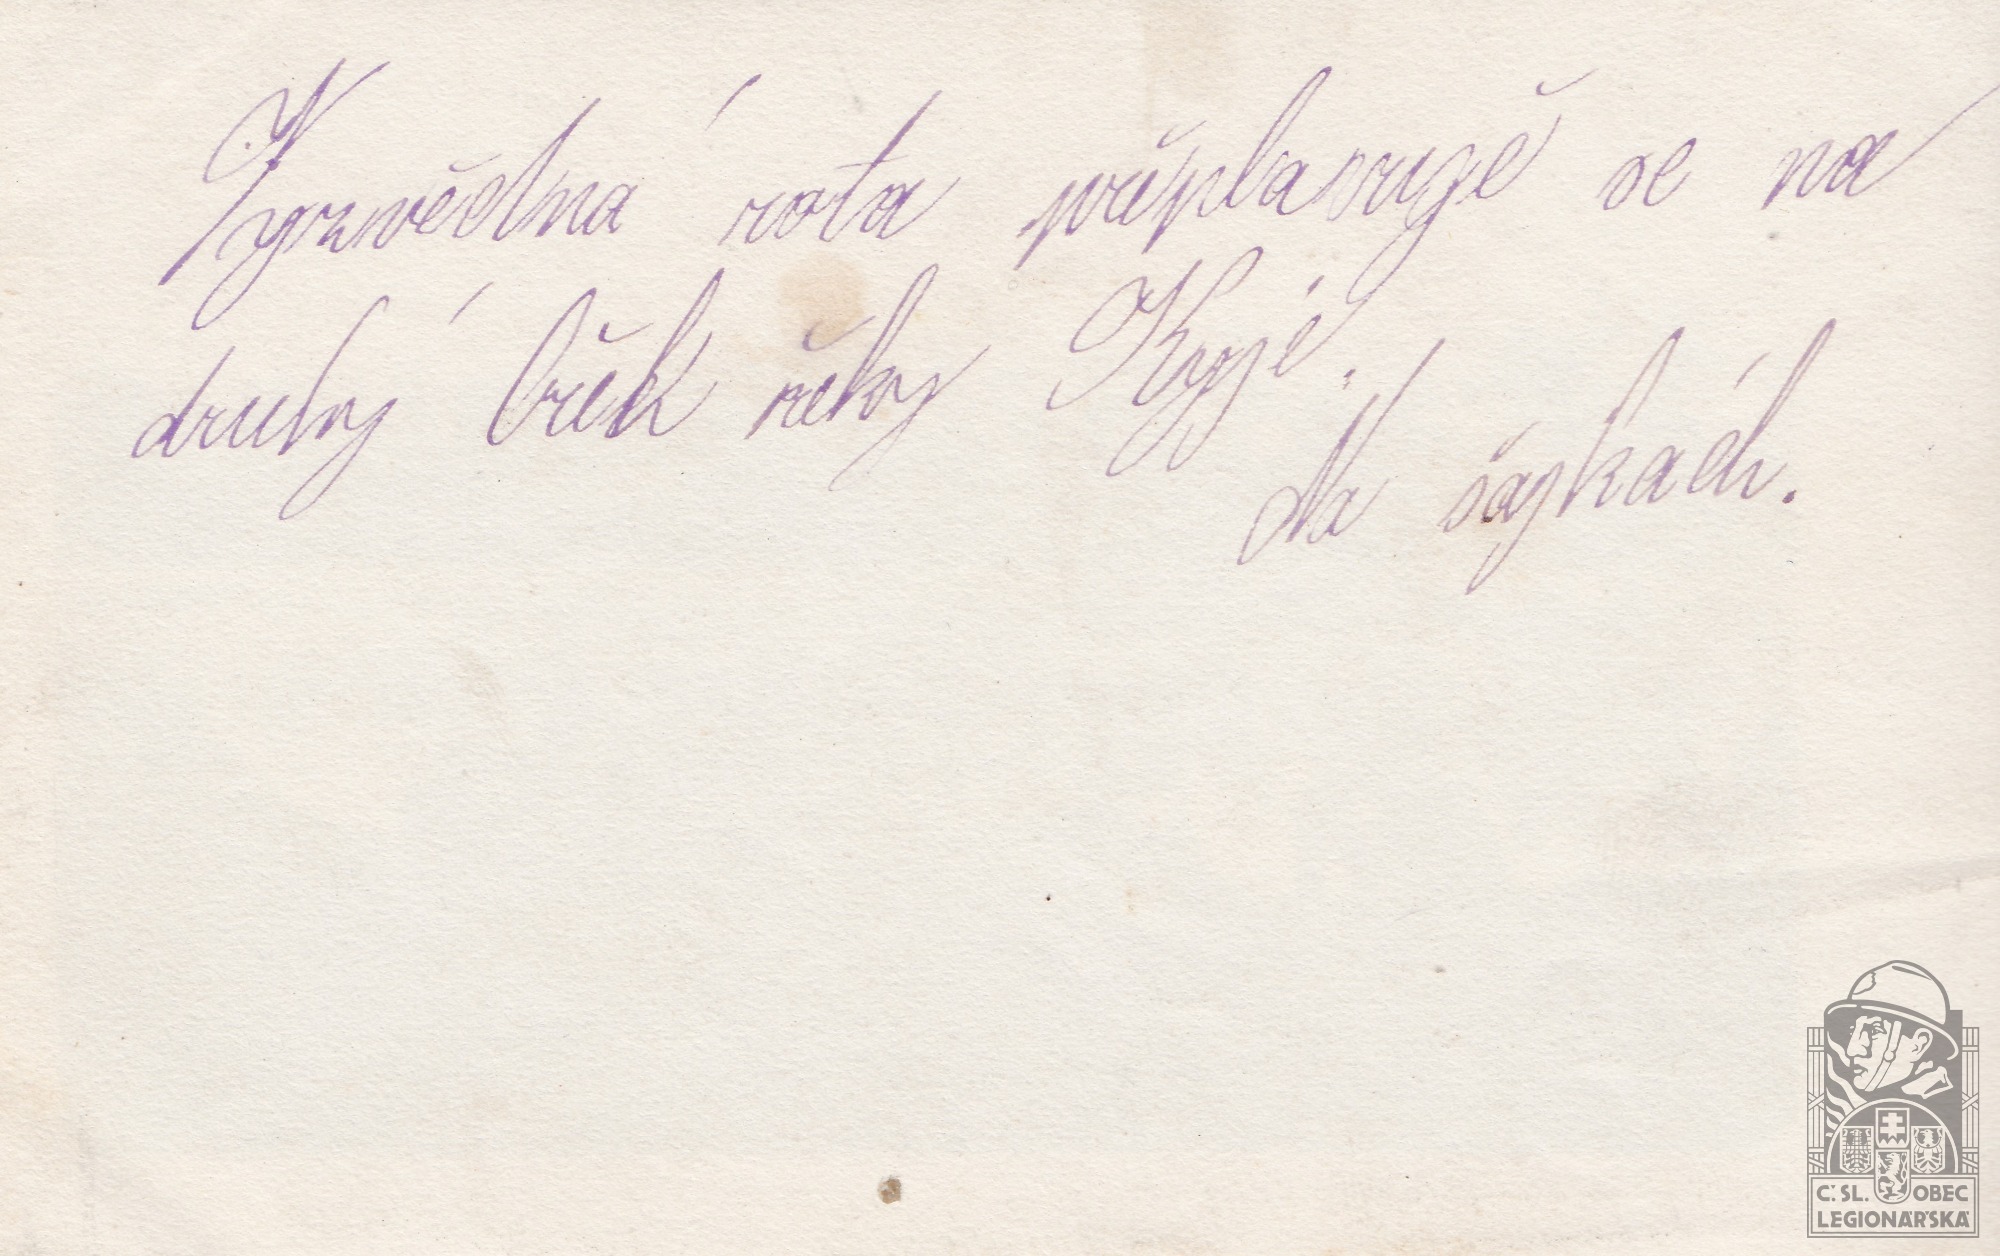 Vyzvědná rota přeplavuje se na
druhý břeh řeky Kyjé.
Na šájkách.
Č. SL. OBEC
LEGIONÁŘSKÁ